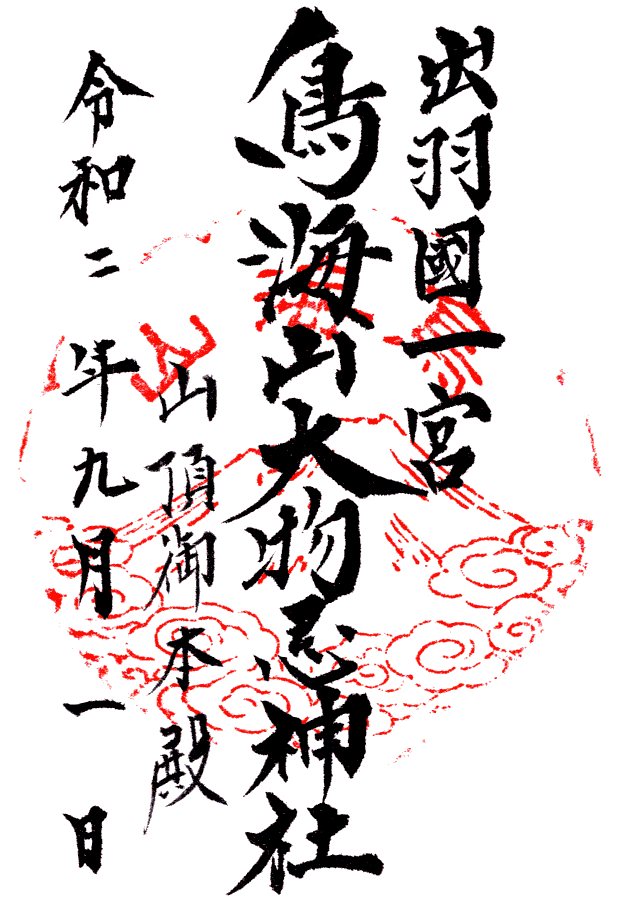 出羽國一宮
鳥海山大物忌神社
山頂御本殿
令和二年九月一日